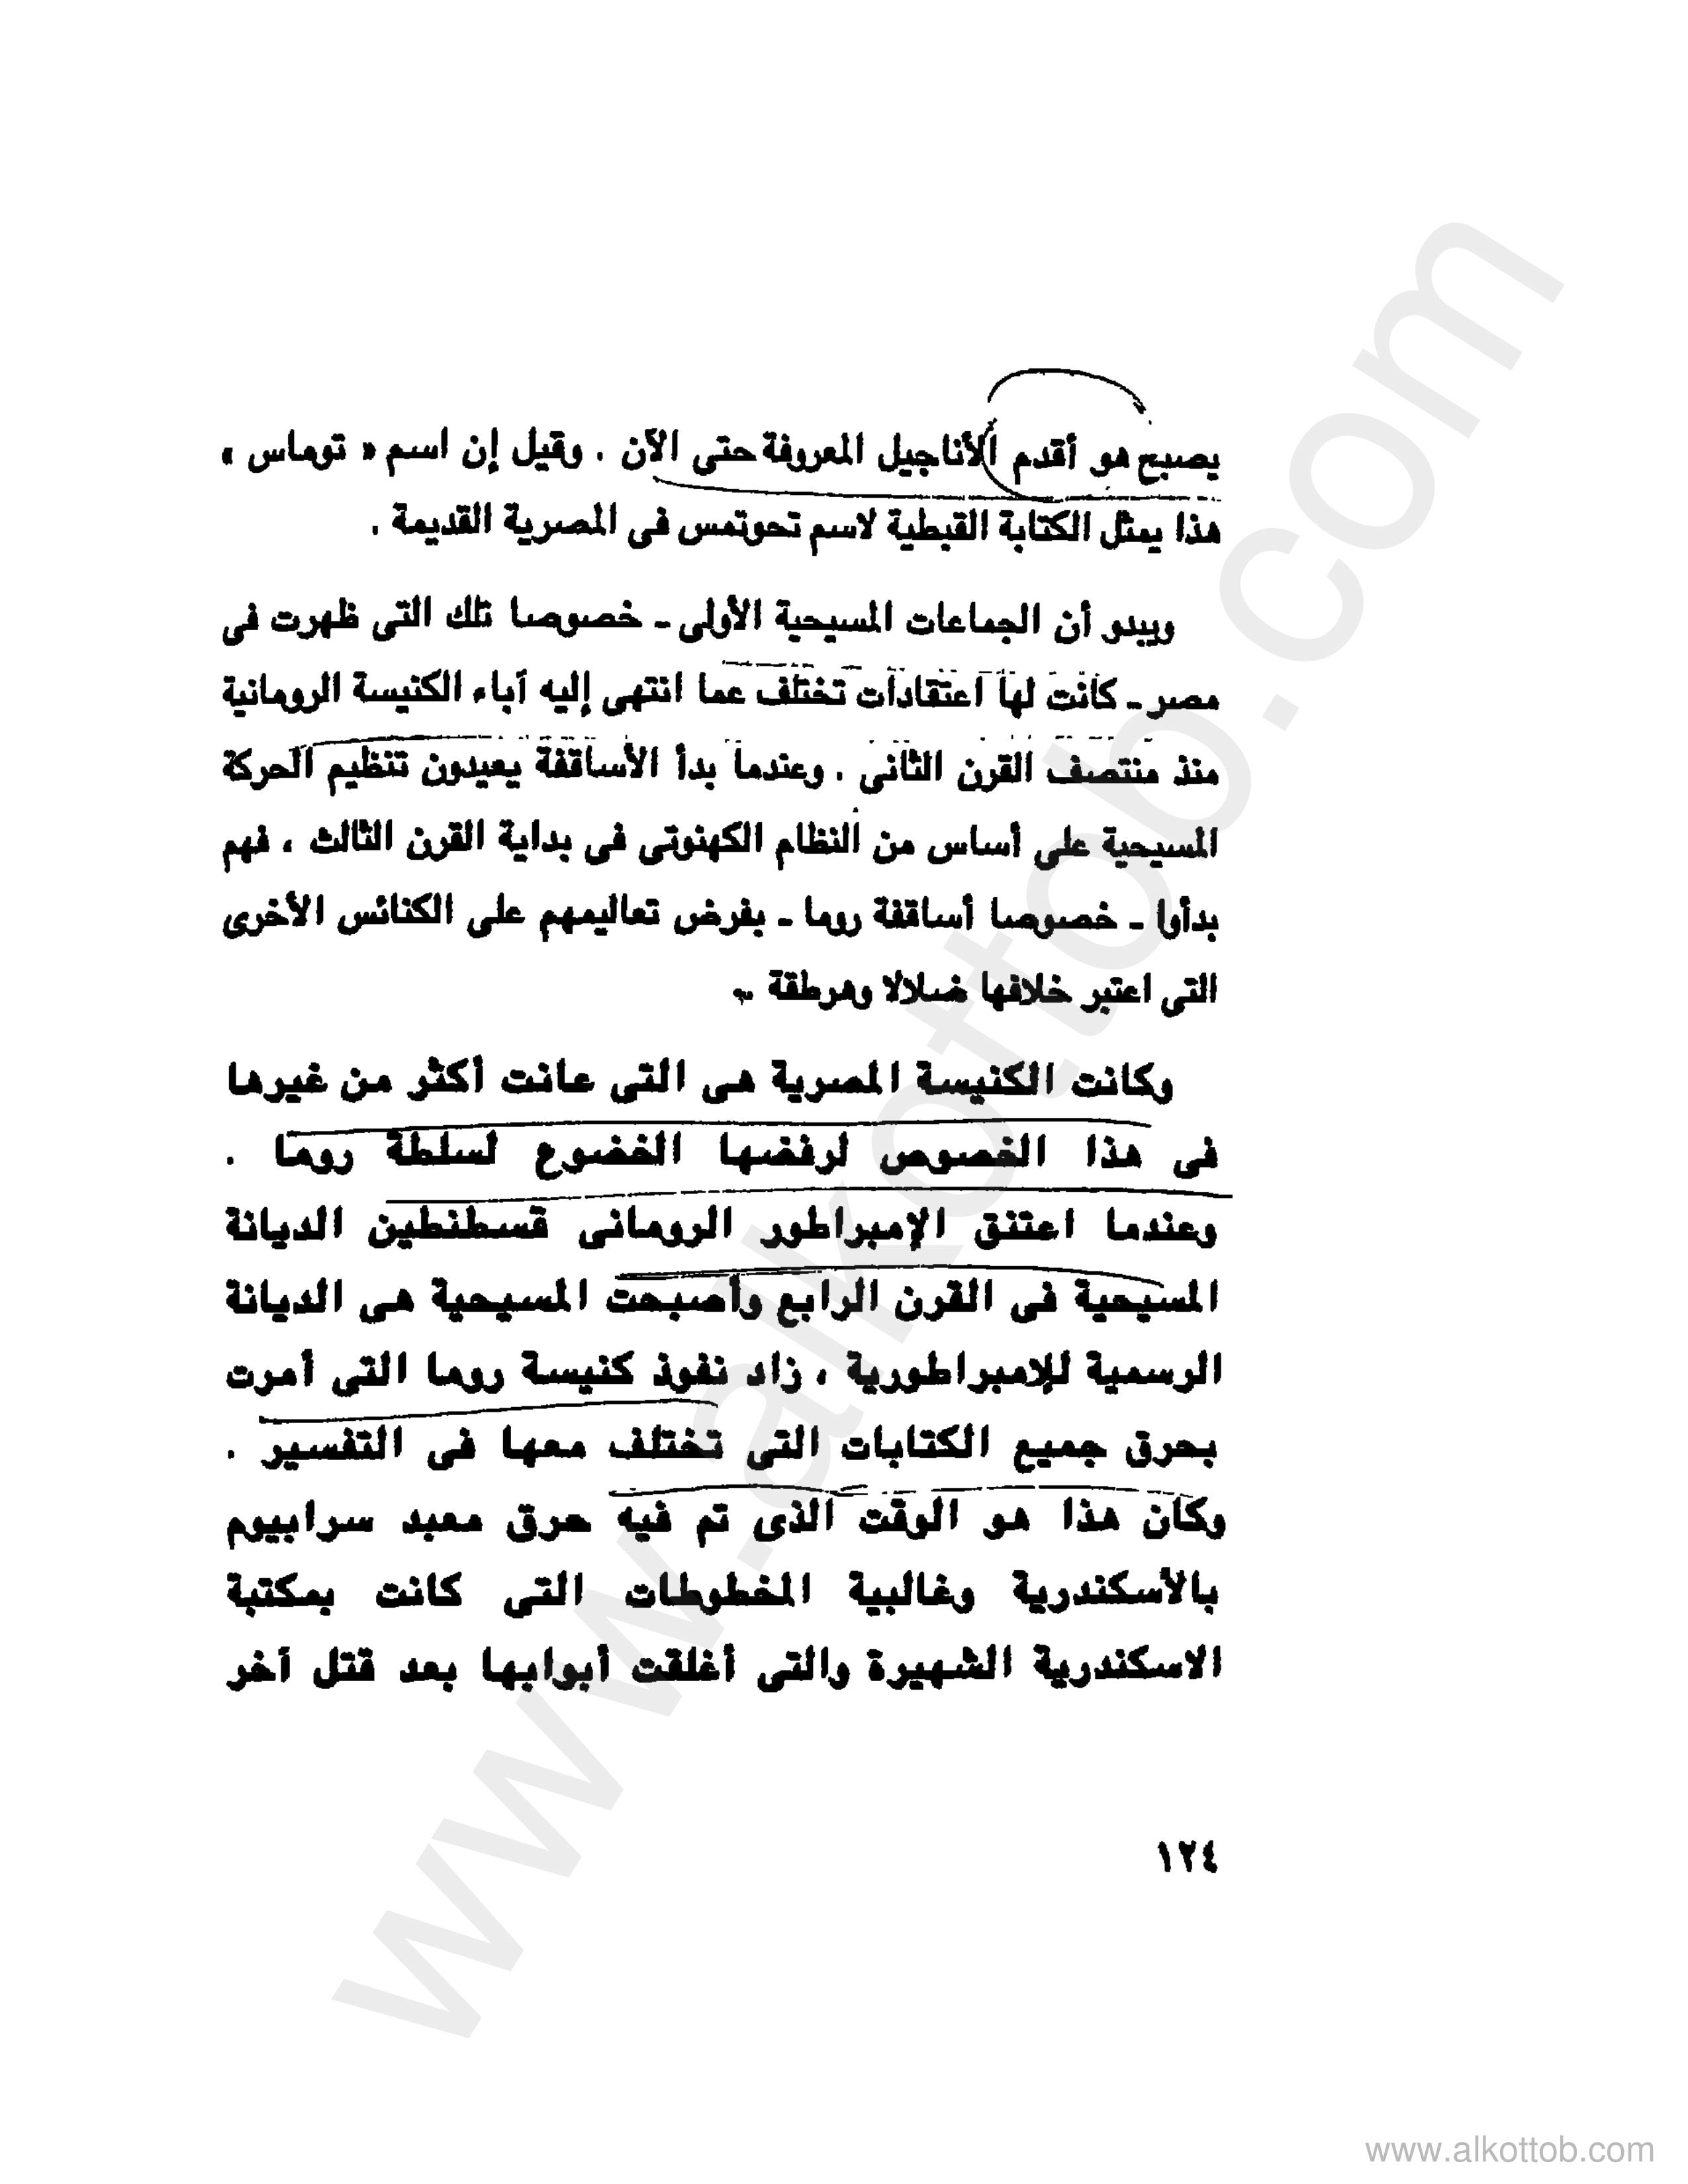 يصبح هو أقدم الأناجيل المعروفة حتى الآن . وقيل إن اسم « توماس »
هذا يمثل الكتابة القبطية لاسم تحوتمس فى المصرية القديمة .
ويبدو أن الجماعات المسيحية الأولى - خصوصا تلك التى ظهرت فى
مصر - كانت لها اعتقادات تختلف عما انتهى إليه آباء الكنيسة الرومانية
منذ منتصف القرن الثانى . وعندما بدأ الأساقفة يعيدون تنظيم الحركة
المسيحية على أساس من النظام الكهنوتى فى بداية القرن الثالث ، فهم
بدأوا - خصوصا أساقفة روما - بفرض تعاليمهم على الكنائس الأخرى
التى اعتبر خلافها ضلالا وهرطقة .
وكانت الكنيسة المصرية هى التى عانت أكثر من غيرها
فى هذا الخصوص لرفضها الخضوع لسلطة روما .
وعندما اعتنق الإمبراطور الرومانى قسطنطين الديانة
المسيحية فى القرن الرابع وأصبحت المسيحية هى الديانة
الرسمية للإمبراطورية ، زاد نفوذ كنيسة روما التى أمرت
بحرق جميع الكتابات التى تختلف معها فى التفسير .
وكان هذا هو الوقت الذى تم فيه حرق معبد سرابيوم
بالأسكندرية وغالبية المخطوطات التى كانت بمكتبة
الاسكندرية الشهيرة والتى أغلقت أبوابها بعد قتل آخر
١٢٤
www.alkottob.com
www.alkottob.com